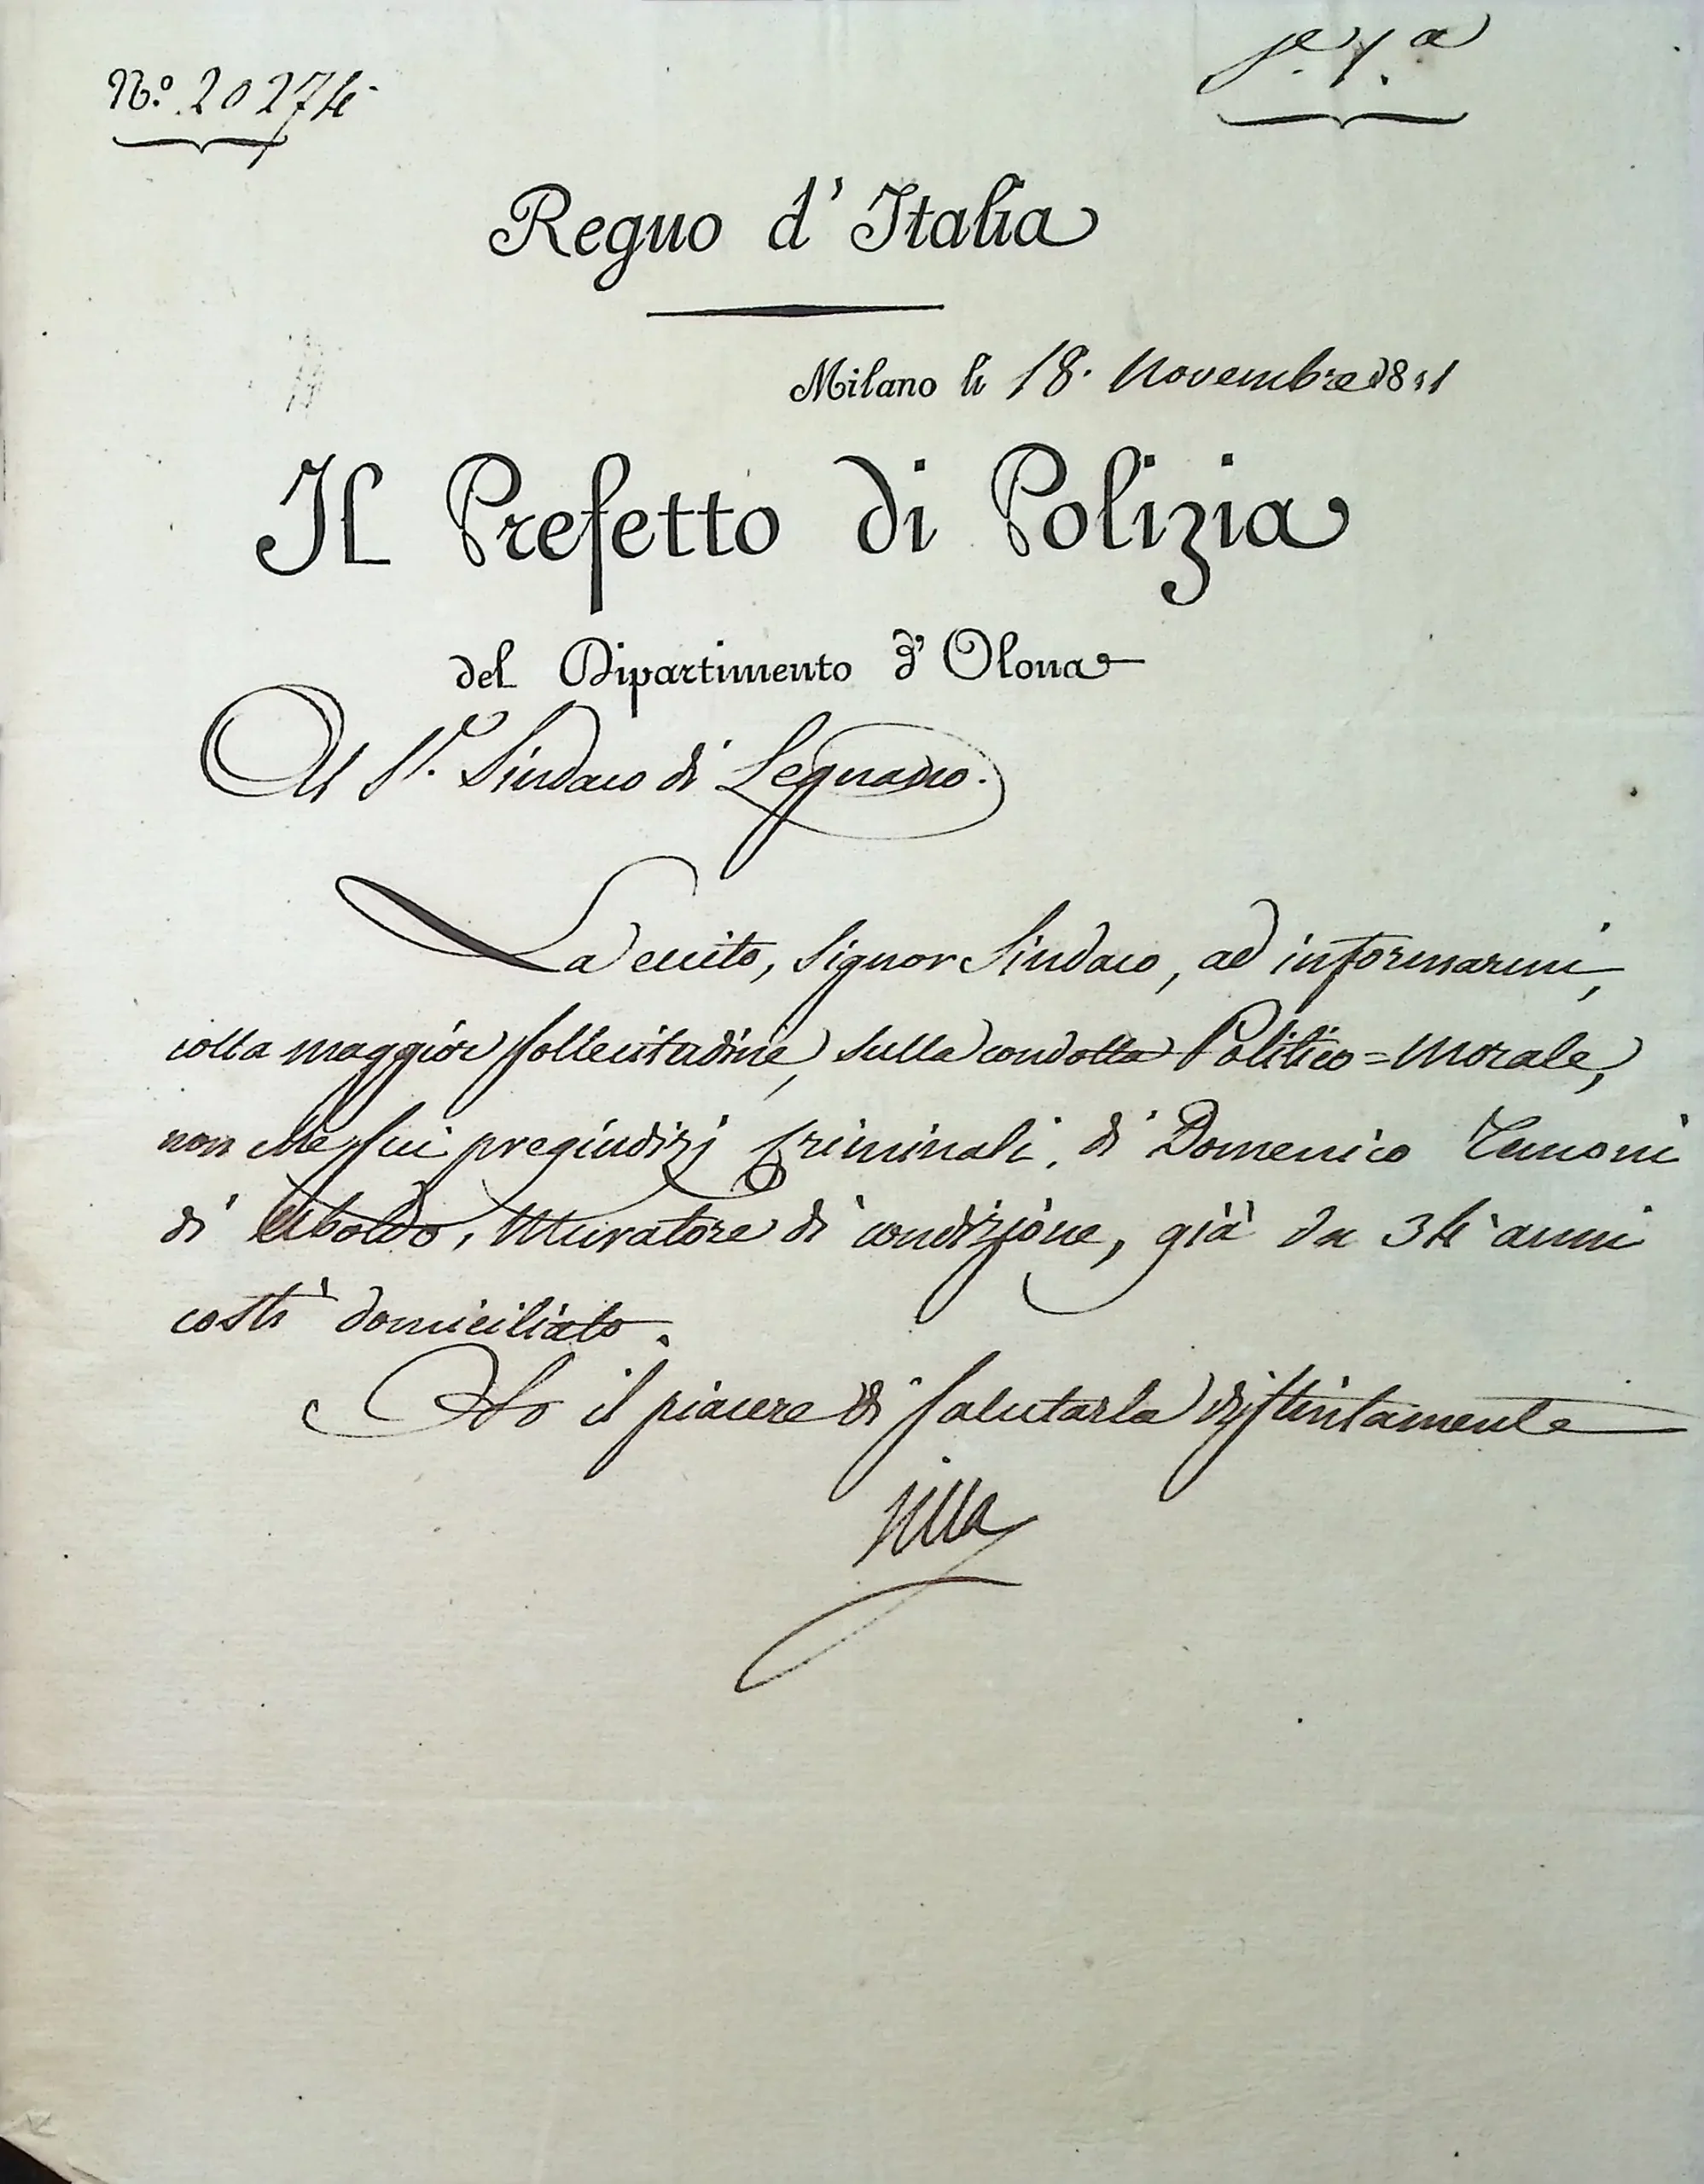 N.º 20274
S.e 1.a
Regno d'Italia
Milano li 18. Novembre 1811
Il Prefetto di Polizia
del Dipartimento d'Olona
Al S.r Sindaco di Legnano.
La eccito, Signor Sindaco, ad informarmi,
colla maggior sollecitudine, sulla condotta Politico=Morale,
non che sui pregiudizj Criminali, di Domenico
di Uboldo, Muratore di condizione, già da 34 anni
costì domiciliato.
Ho il piacere di salutarla distintamente
Villa